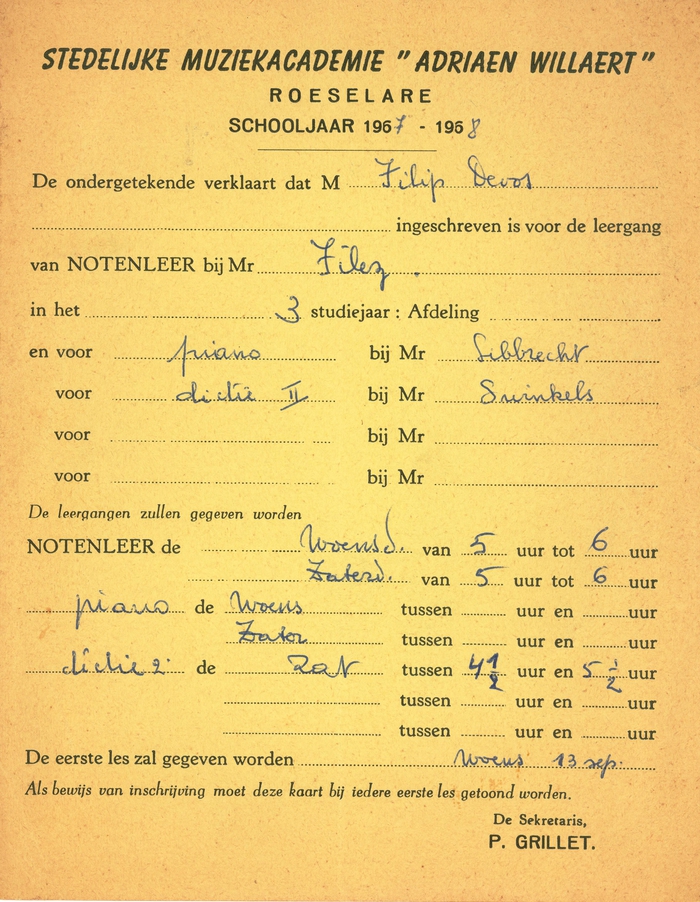 STEDELIJKE MUZIEKACADEMIE "ADRIAEN WILLAERT"
ROESELARE
SCHOOLJAAR 1967 - 1968
De ondergetekende verklaart dat M Filip Devos
ingeschreven is voor de leergang
van NOTENLEER bij Mr Filez.
in het 3 studiejaar : Afdeling
en voor piano bij Mr Sibbrecht
voor dictie II bij Mr Swinkels
voor bij Mr
voor bij Mr
De leergangen zullen gegeven worden
NOTENLEER de Woensd. van 5 uur tot 6 uur
Zaterd. van 5 uur tot 6 uur
piano de Woens tussen uur en uur
Zater tussen uur en uur
dictie 2 de Zat tussen 4 1/2 uur en 5 1/2 uur
tussen uur en uur
tussen uur en uur
De eerste les zal gegeven worden woens 13 sep.
Als bewijs van inschrijving moet deze kaart bij iedere eerste les getoond worden.
De Sekretaris,
P. GRILLET.